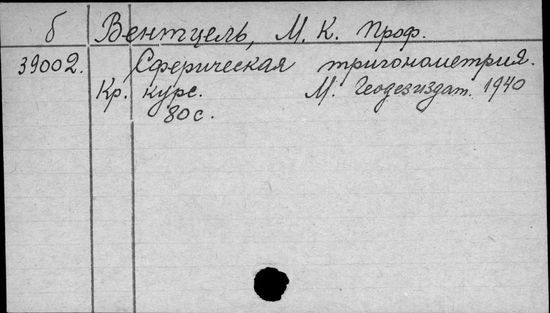 б Вентцель, М. К. Проф.
39002. Сферическая тригонометрия.
Кр. курс. М. Геодезиздат. 1940
80 с.